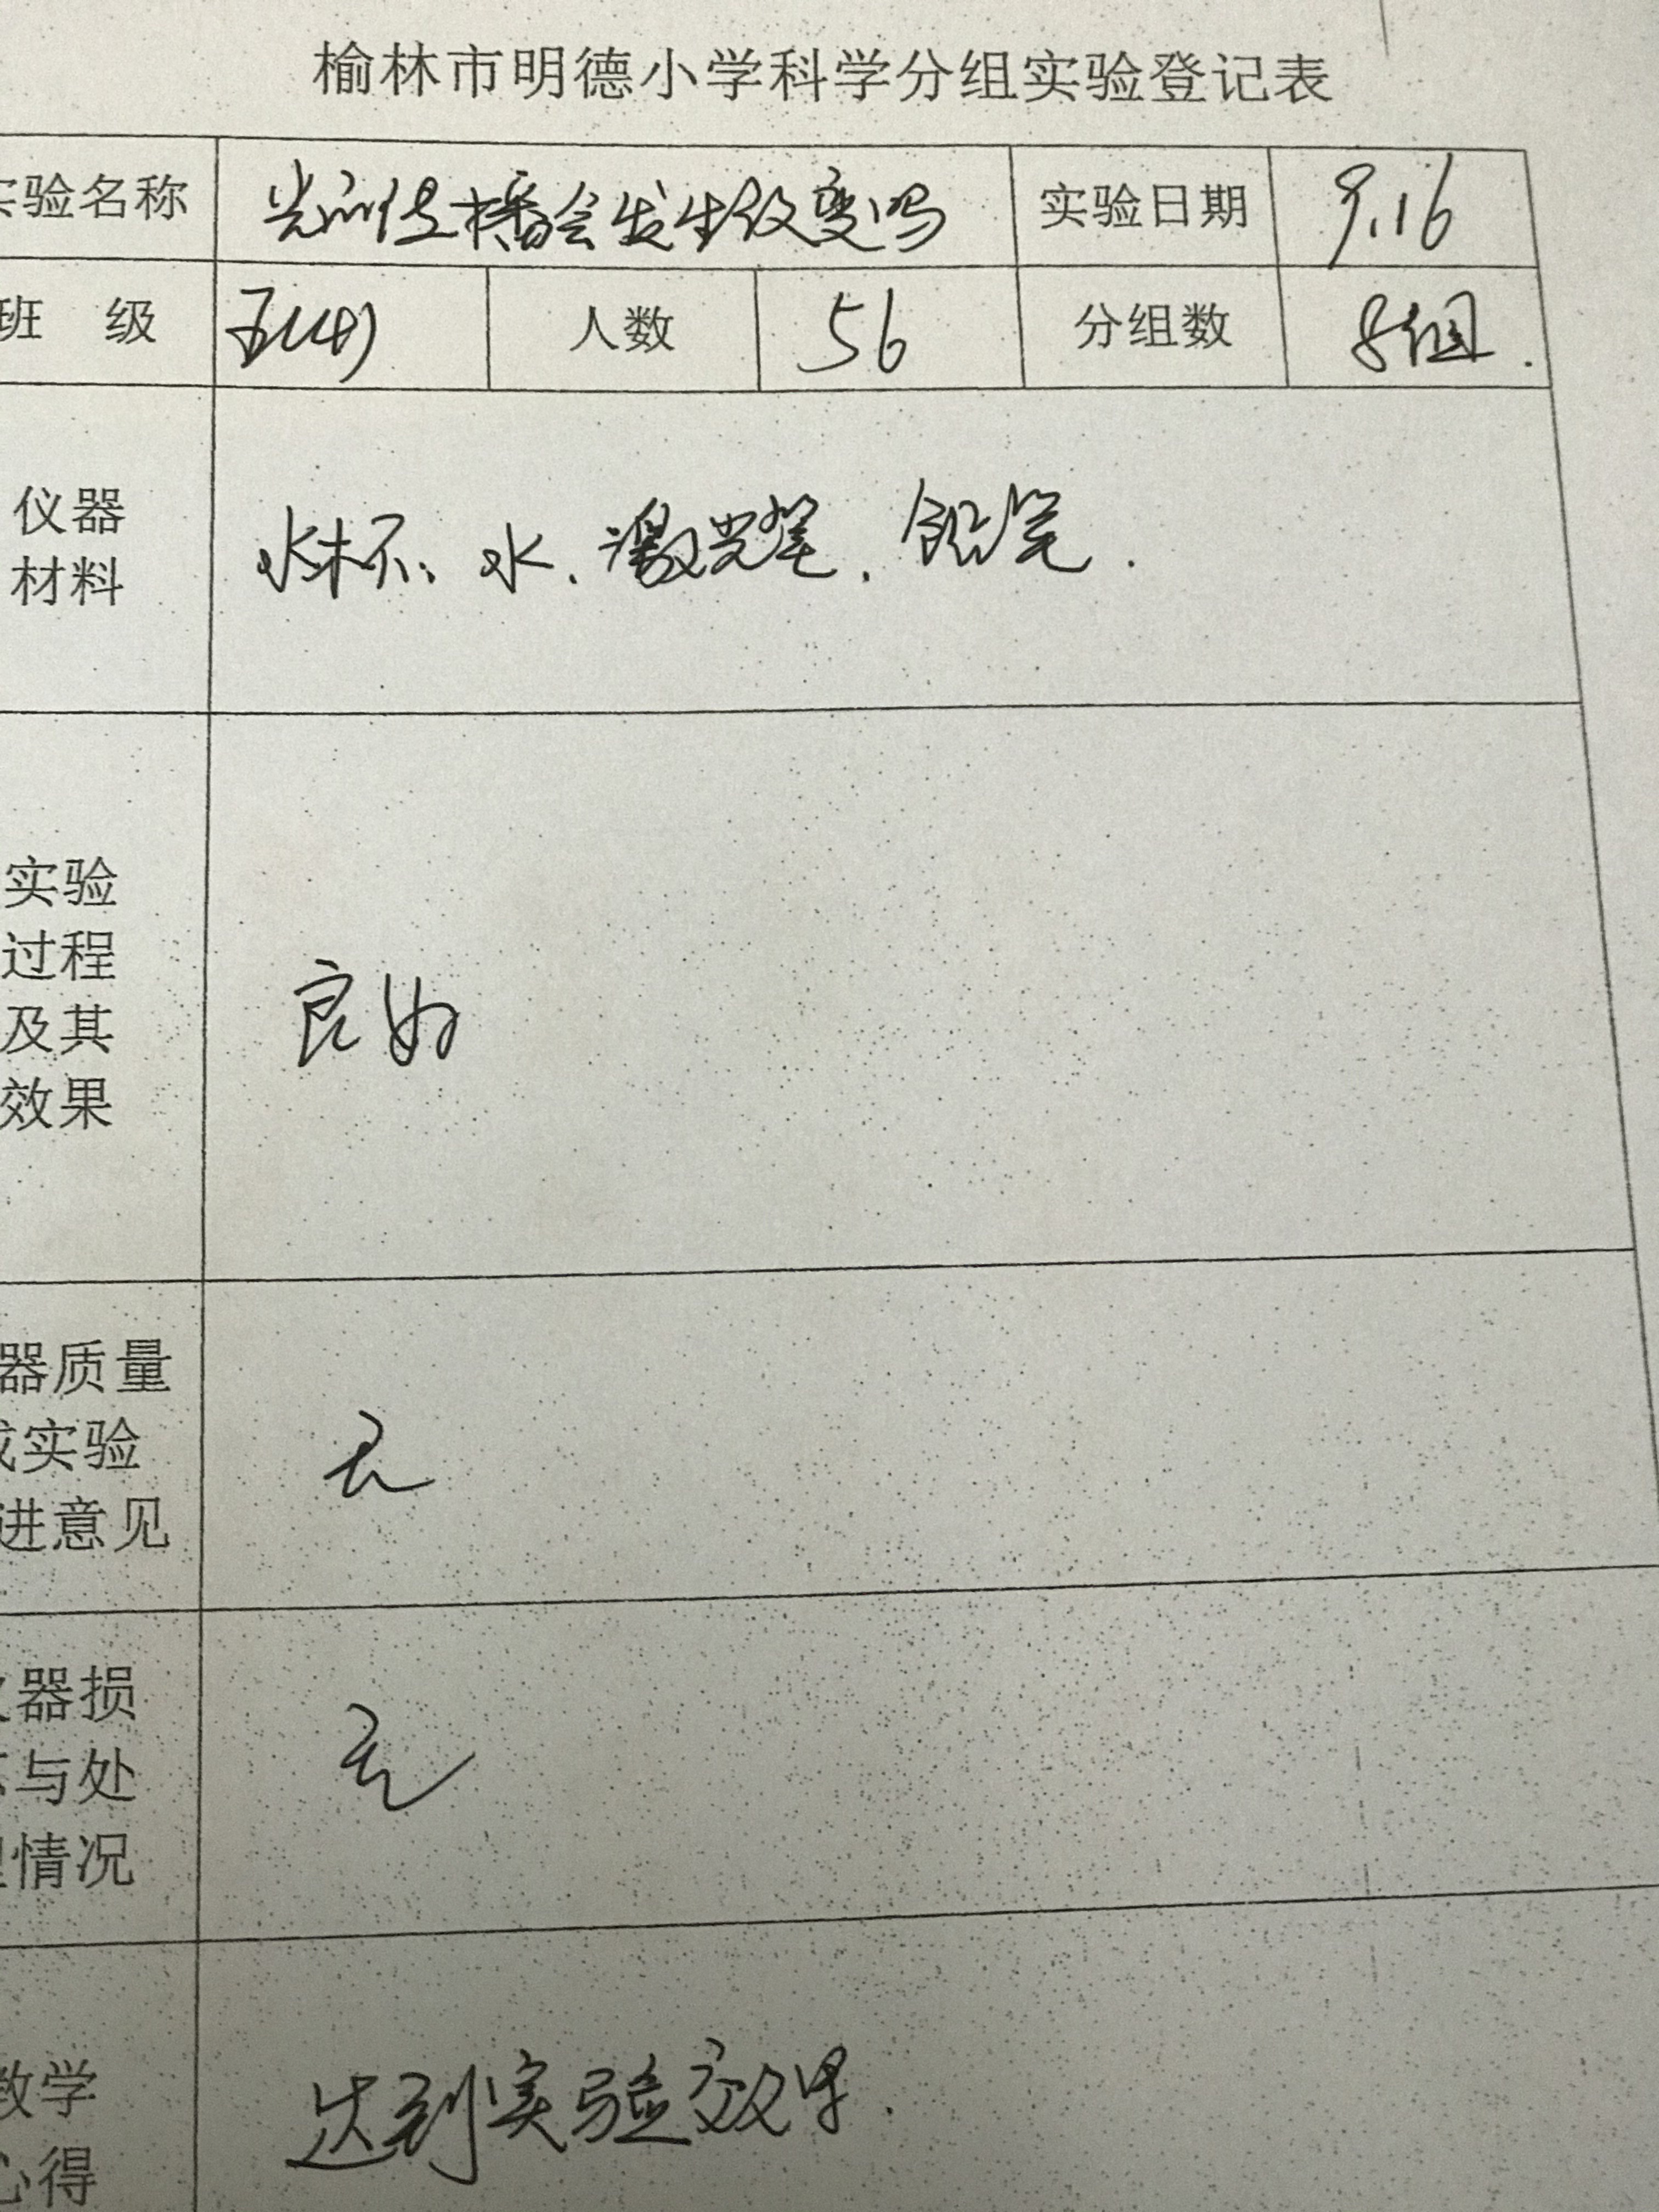 榆林市明德小学科学分组实验登记表
实验名称 光的传播会发生改变吗 实验日期 9.16
班 级 五(4) 人数 56 分组数 8组.
仪器
材料
水杯、水、激光笔、铅笔.
实验
过程
及其
效果
良好
器质量
或实验
进意见
无
仪器损
坏与处
理情况
无
教学
心得
达到实验效果.